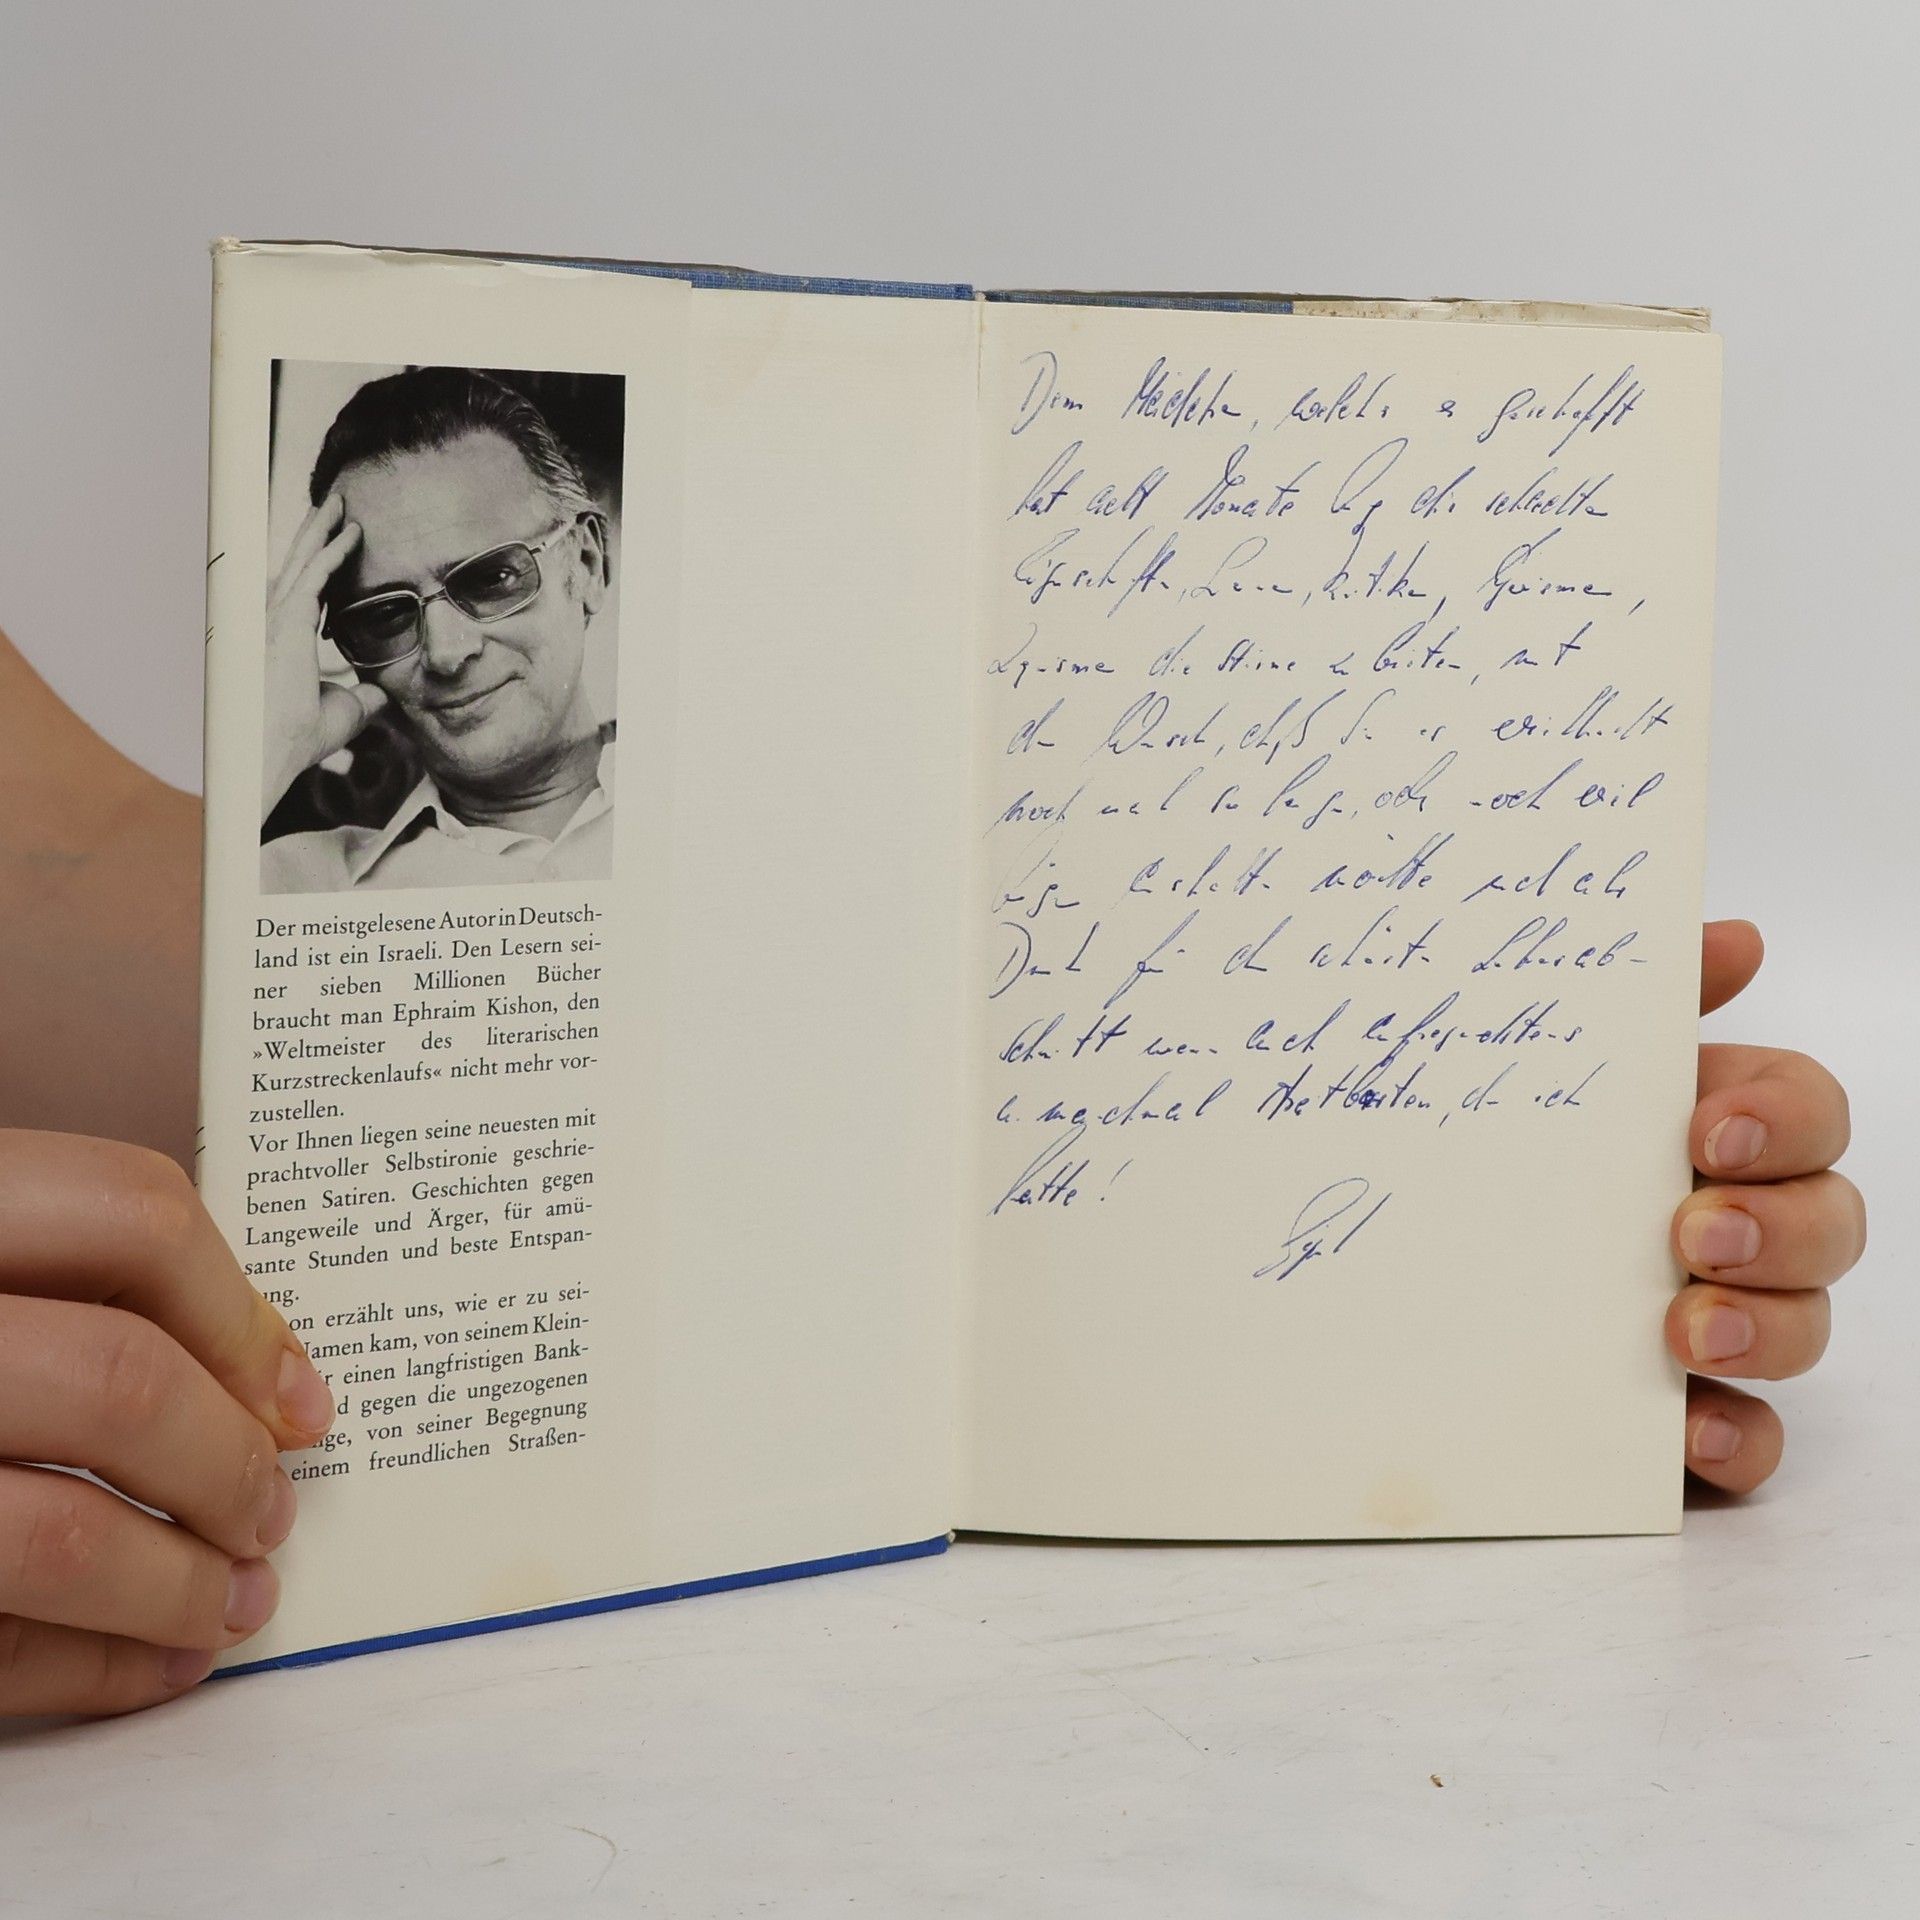 Der meistgelesene Autor in Deutsch-
land ist ein Israeli. Den Lesern sei-
ner sieben Millionen Bücher
braucht man Ephraim Kishon, den
»Weltmeister des literarischen
Kurzstreckenlaufs« nicht mehr vor-
zustellen.
Vor Ihnen liegen seine neuesten mit
prachtvoller Selbstironie geschrie-
benen Satiren. Geschichten gegen
Langeweile und Ärger, für amü-
sante Stunden und beste Entspan-
ung.
on erzählt uns, wie er zu sei-
Namen kam, von seinem Klein-
r einen langfristigen Bank-
d gegen die ungezogenen
nge, von seiner Begegnung
einem freundlichen Straßen-
Dem Mädchen, welches es geschafft
hat acht Monate lang die schlechten
Eigenschaften, Launen, Kritiken,
die Stirne zu bieten, mit
dem Wunsch, daß Sie es
noch mal so lange, oder noch viel
länger aushalten möchte und als
Dank für den schönsten Lebensab-
schnitt wenn auch aufregendsten
u. manchmal, den ich
hatte!